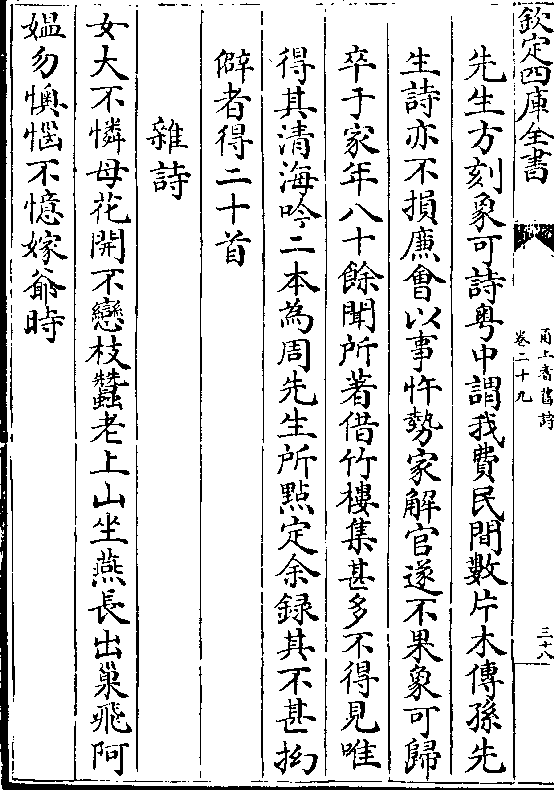 欽定四庫全書
甬上耆舊詩
卷二十九
三十八
先生方刻象可詩粤中謂我費民間數片木傳孫先
生詩亦不損廉會以事忤勢家解官遂不果象可歸
卒于家年八十餘聞所著借竹樓集甚多不得見唯
得其清海吟二本為周先生所點定余録其不甚拗
僻者得二十首
雜詩
女大不憐母花開不戀枝蠶老上山坐燕長出巢飛阿
媪勿懊惱不憶嫁爺時